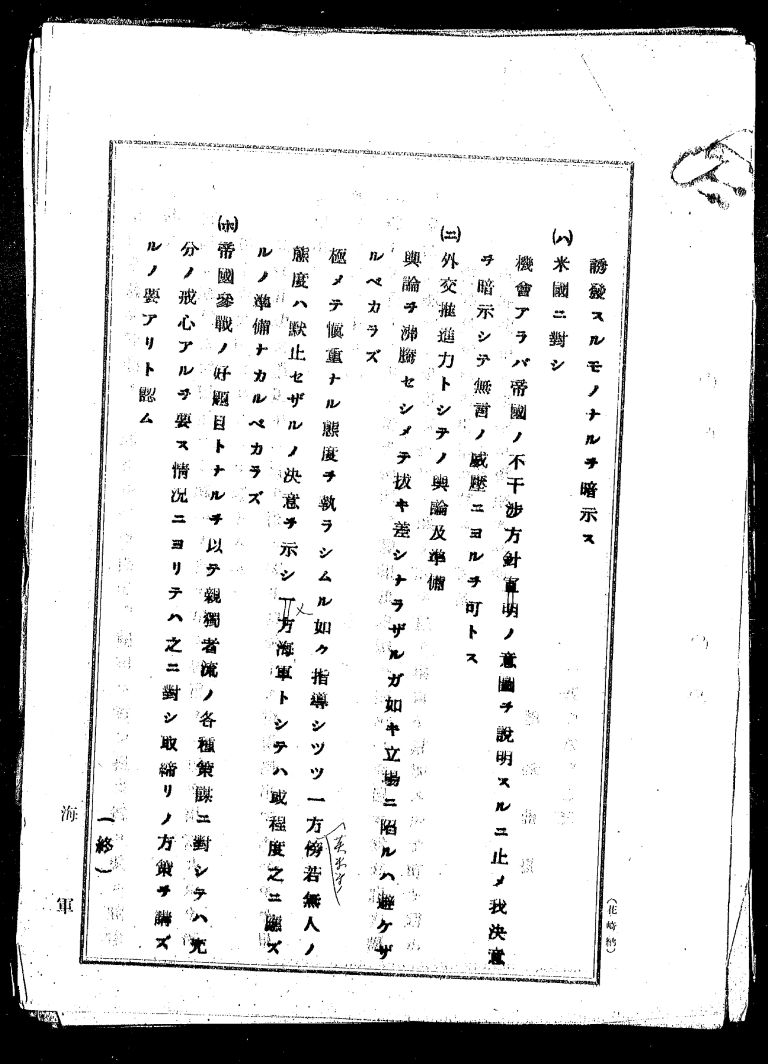 誘發スルモノナルヲ暗示ス
(ハ)米國ニ對シ
機會アラバ帝國ノ不干渉方針宣明ノ意圖ヲ說明スルニ止メ我決意
ヲ暗示シテ無言ノ威壓ニヨルヲ可トス
(ニ)外交推進力トシテノ輿論及準備
輿論ヲ沸騰セシメテ拔キ差シナラザルガ如キ立場ニ陷ルハ避ケザ
ルベカラズ
極メテ愼重ナル態度ヲ執ラシムル如ク指導シツツ一方傍若無人ノ
態度ハ默止セザルノ決意ヲ示シ一方海軍トシテハ或程度之ニ應ズ
ルノ準備ナカルベカラズ
(ホ)帝國參戰ノ好題目トナルヲ以テ親獨者流ノ各種策謀ニ對シテハ充
分ノ戒心アルヲ要ス情況ニヨリテハ之ニ對シ取締リノ方策ヲ講ズ
ルノ要アリト認ム
(終)
海軍
(花崎納)